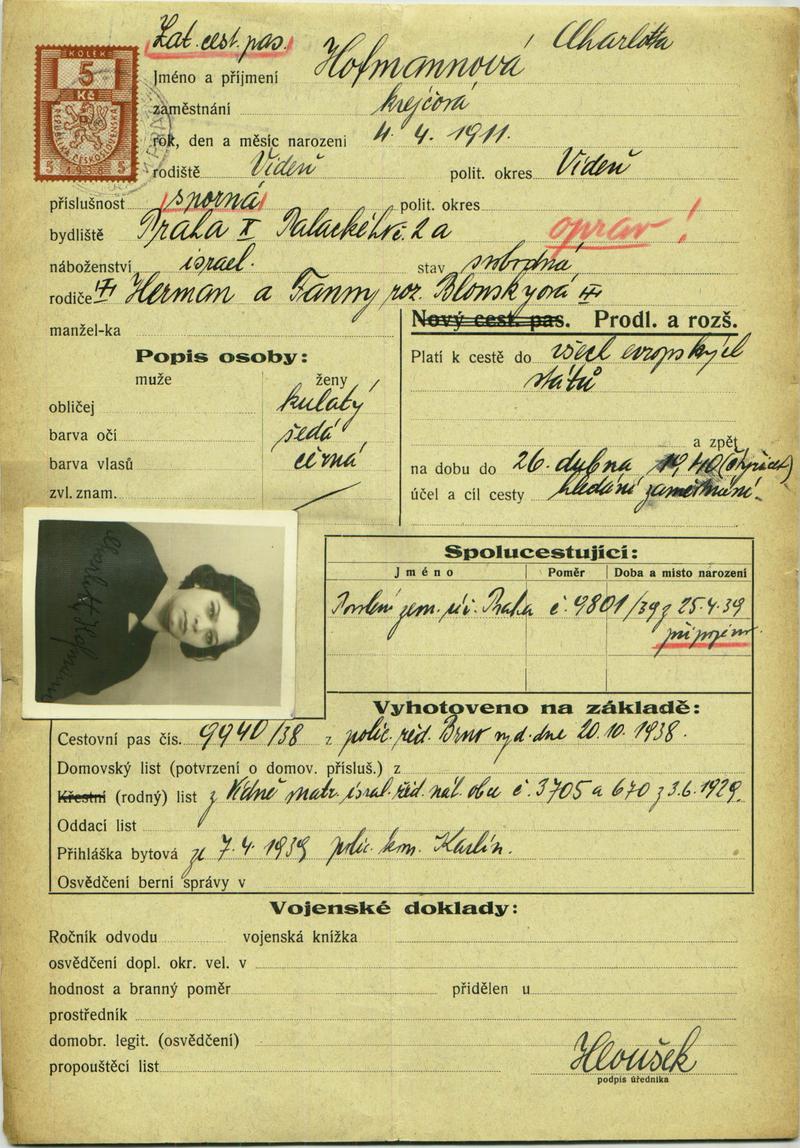 Zat. cest. pas.
KOLEK
5
Kč
REPUBLIKA ČESKOSLOVENSKÁ
5 1938 5
Jméno a příjmení Hofmannová Charlotta
zaměstnání krejčová
rok, den a měsíc narození 4. 4. 1911.
rodiště Vídeň polit. okres Vídeň
příslušnost sporná polit. okres
bydliště Praha X Palackého č. 2a oprav!
náboženství israel. stav svobodná
rodiče Herman a Fanny roz. Blonskyová
manžel-ka
Nový cest. pas. Prodl. a rozš.
Popis osoby:
muže ženy
obličej kulatý
barva očí šedá
barva vlasů černá
zvl. znam.
Platí k cestě do všech evropských
států
a zpět
na dobu do 26. dubna 1940
účel a cíl cesty hledání zaměstnání.
Charlotta Hofmann
Spolucestující:
Jméno Poměr Doba a místo narození
Povolení zem. úř. Praha č. 9801/39 z 25.4.39
připojeno
Vyhotoveno na základě:
Cestovní pas čís. 9940/38 z polic. řed. Brno vyd. dne 20.10.1938.
Domovský list (potvrzení o domov. přísluš.) z
Křestní (rodný) list z Vídně matr. israel. nář. nát. obce č. 3705 a 670 z 3.6.1929.
Oddací list
Přihláška bytová ze 7.4.1939 polic. kom. Karlín.
Osvědčení berní správy v
Vojenské doklady:
Ročník odvodu vojenská knížka
osvědčení dopl. okr. vel. v
hodnost a branný poměr přidělen u
prostředník
domobr. legit. (osvědčení)
propouštěcí list
Hloušek
podpis úředníka